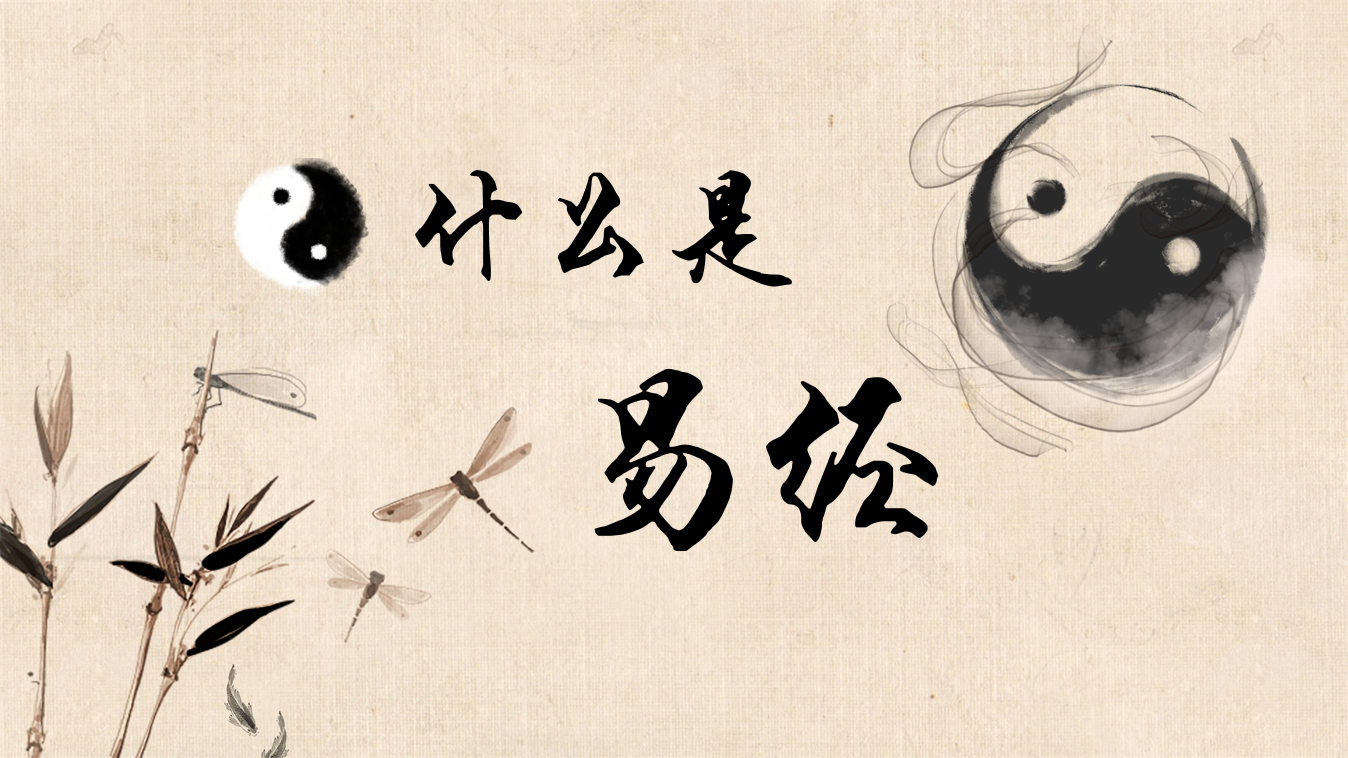 什么是
易经